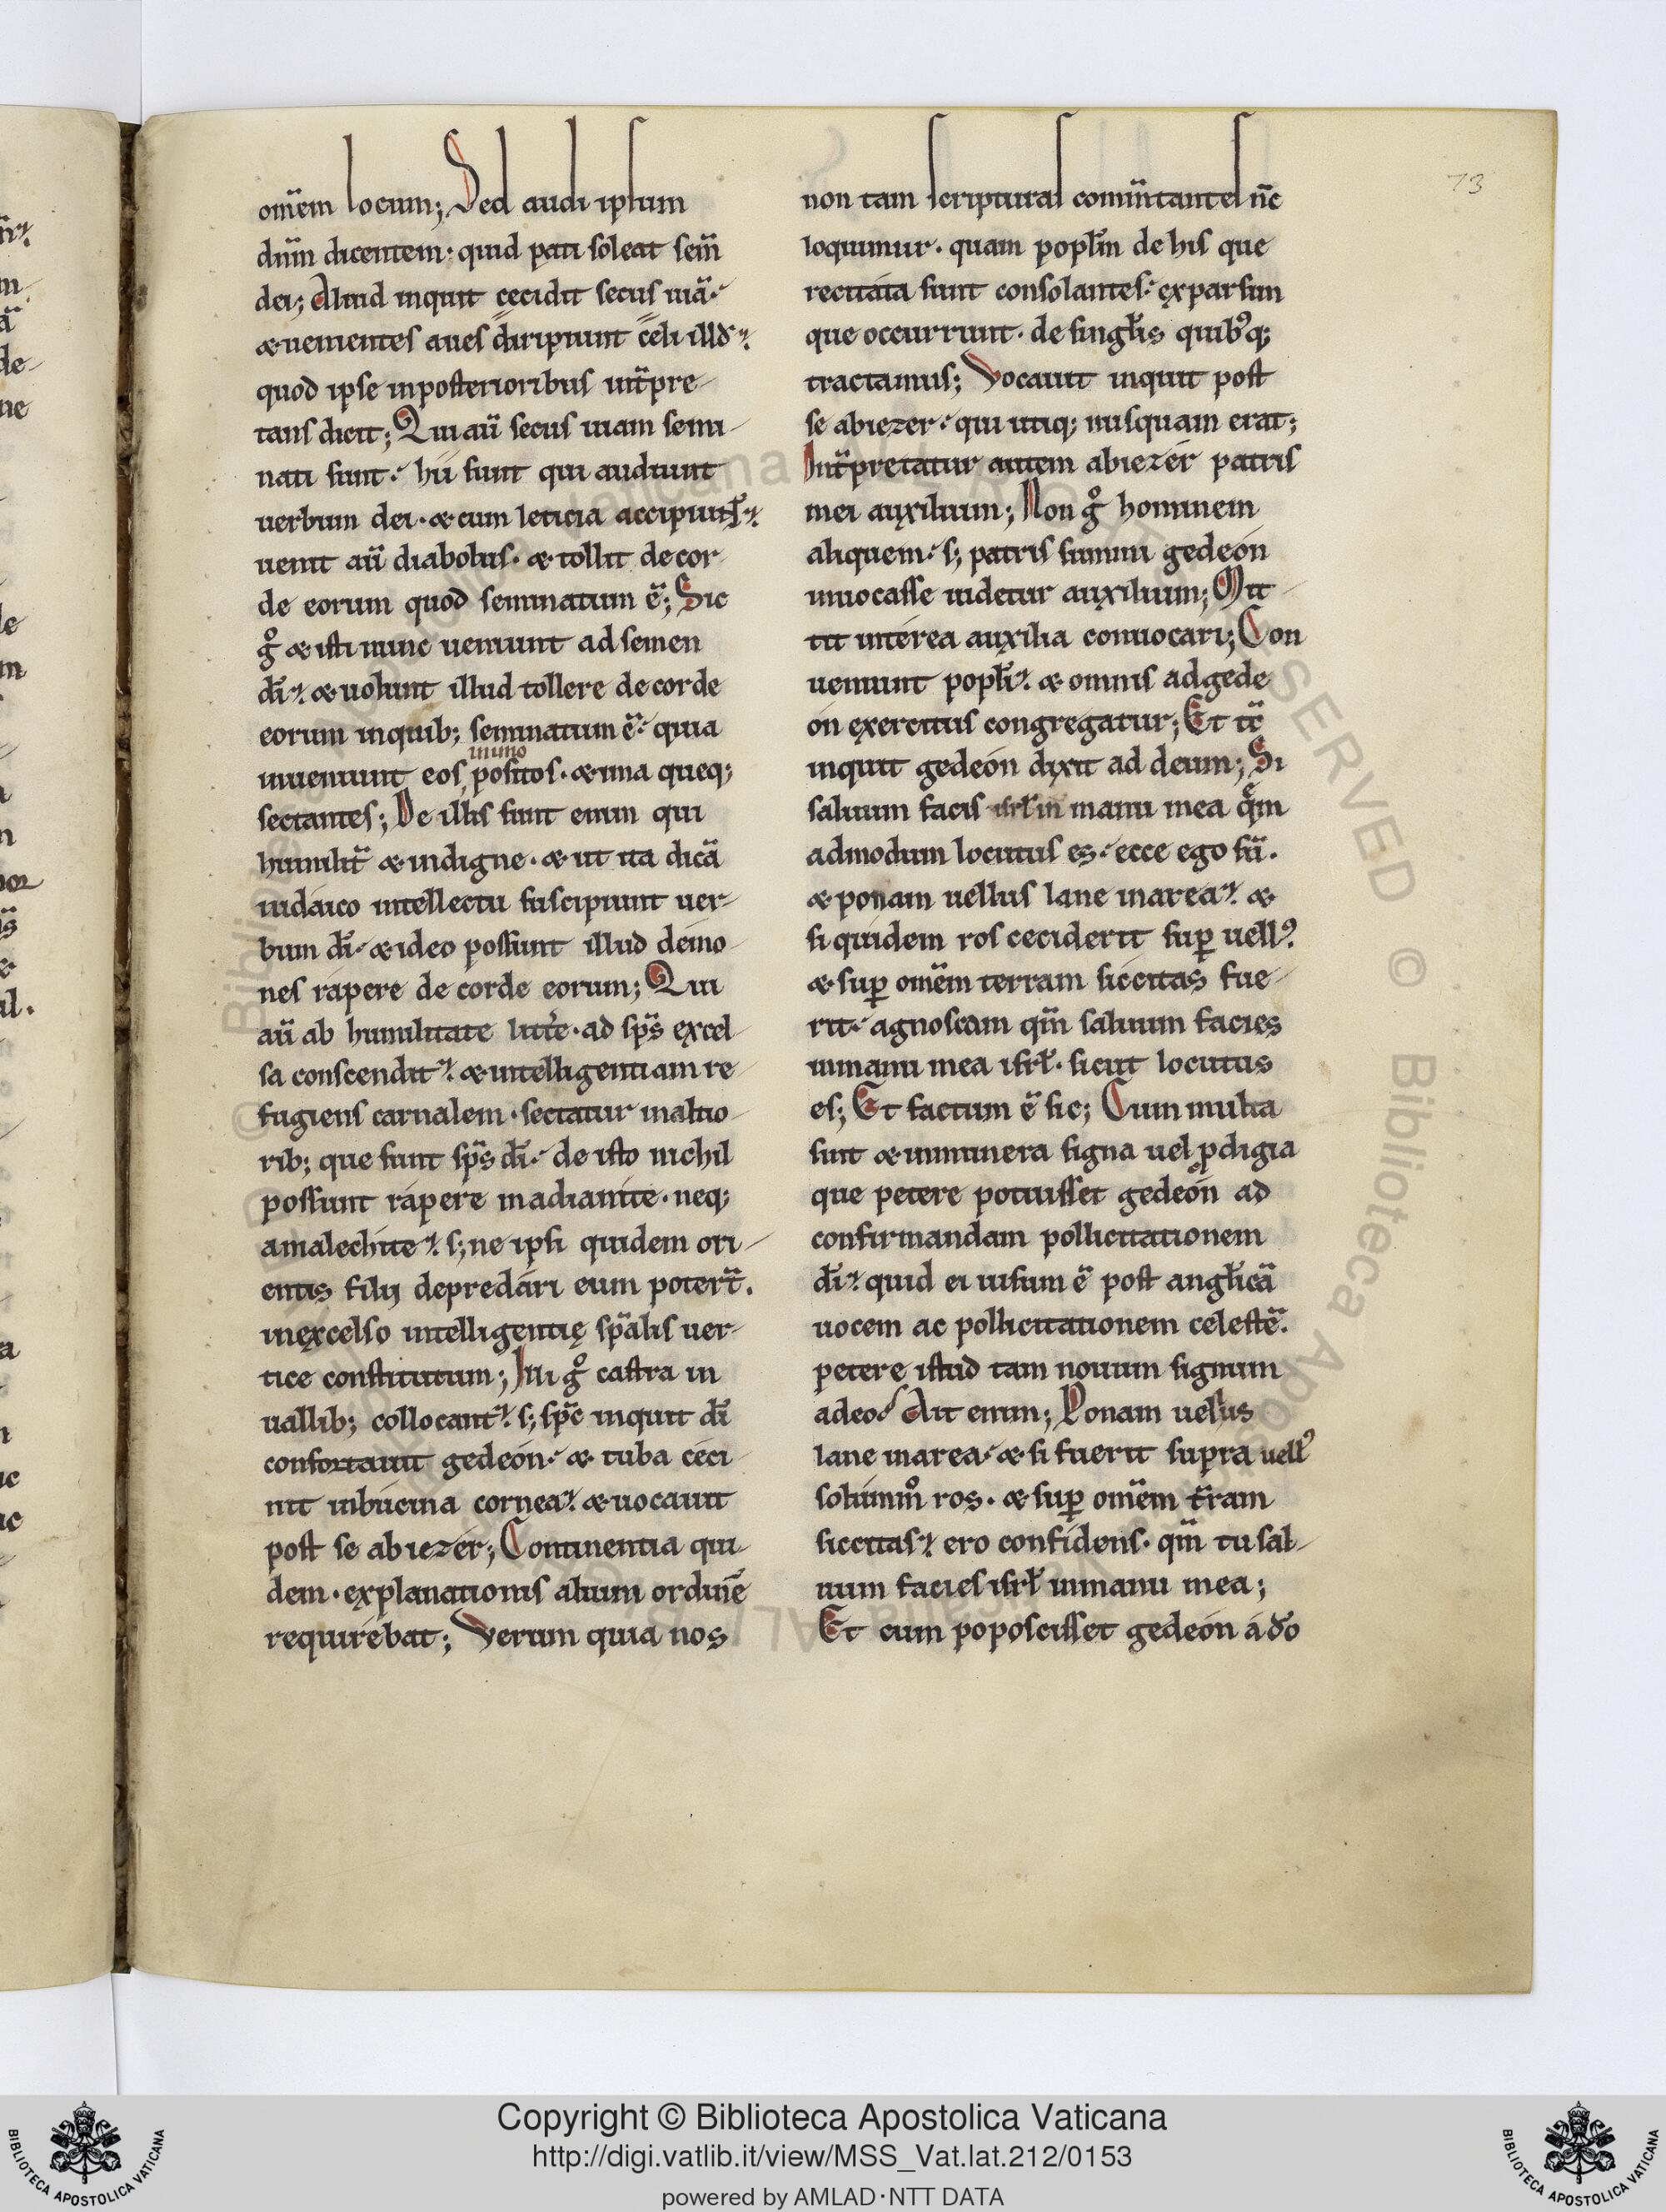 om̅em locum; Sed audi ipsum
dn̅m dicentem· quid pati soleat sem̅
dei; Aliud inquit cecidit secus uia̅·
& uenientes aues diripiunt celi illd̅·
quod ipse inposterioribus int̅pre-
tans dicit; Qui au̅ secus uiam semi-
nati sunt· hii sunt qui audiunt
uerbum dei· & cum leticia accipiunt·
uenit au̅ diabolus· & tollit decor-
de eorum quod seminatum e̅; Sic
gͦ & isti nunc ueniunt adsemen
di̅· & uolunt illud tollere decorde
eorum inquib; seminatum e̅· quia
inueniunt eos imimo positos· & ima queq;
sectantes; De illis sunt enim qui
humilit̅ & indigne· & ut ita dica̅
iudaico intellectu suscipiunt uer-
bum di̅· & ideo possunt illud demo-
nes rapere de corde eorum; Qui
au̅ ab humilitate litt̅e· ad sp̅s excel-
sa conscendit· & intelligentiam re-
fugiens carnalem· sectatur inaltio-
rib; que sunt sp̅s di̅· de isto nichil
possunt rapere madianite· neq;
amalechite· s; ne ipsi quidem ori-
entis filij depredari eum poter̅t.
inęxcelso intelligentię sp̅alis uer-
tice constitutum; Illi gͦ castra in
uallib; collocant· s; sp̅c inquit di̅
confortauit gedeon· & tuba ceci-
nit inbucina cornea· & uocauit
post se abiezer; Continentia qui-
dem· explanationis alium ordine̅
requirebat; Verum quia nos
non tam scripturas com̅mtantes nc̅
loquimur· quam popl̅m de his que
recitata sunt consolantes· ęxparsim
que occurrunt· de singl̅is quibꝰq;
tractamus; Vocauit inquit post
se abiezer· qui utiq; nusquam erat;
Int̅pretatur autem abiezer patris
mei auxilium; Non gͦ hominem
aliquem· s; patris summi gedeon
inuocasse uidetur auxilium; Mit-
tit interea auxilia conuocari; Con
ueniunt popl̅i· & omnis adgede-
on ęxercitus congregatur; Et tc̅
inquit gedeon dixit ad deum; Si
saluum facis isrl̅ in manu mea qe̅m
admodum locutus es· ecce ego su̅.
& ponam uellus lane inarea· &
si quidem ros ceciderit sup̲ uellꝰ.
& sup̲ om̅em terram siccitas fue-
rit· agnoscam qm̅ saluum facies
inmanu mea isrl̅· sicut locutus
es; Et factum e̅ sic; Cum multa
sint & innumera signa uel pͦdigia
que petere potuisset gedeon ad
confirmandam pollicitationem
di̅· quid ei uisum e̅ post angl̅ica̅
uocem ac pollicitationem celeste̅.
petere istud tam nouum signum
adeo· Ait enim; Ponam uellus
lane inarea· & si fuerit supra uellꝰ
solummͦ ros· & sup̲ om̅em t̅ram
siccitas· ero confidens· qm̅ tu sal-
uum facies isrl̅ inmanu mea;
Et cum poposcisset gedeon a do̅
73
Copyright © Biblioteca Apostolica Vaticana
http://digi.vatlib.it/view/MSS_Vat.lat.212/0153
powered by AMLAD·NTT DATA
BIBLIOTECA APOSTOLICA VATICANA
BIBLIOTECA APOSTOLICA VATICANA